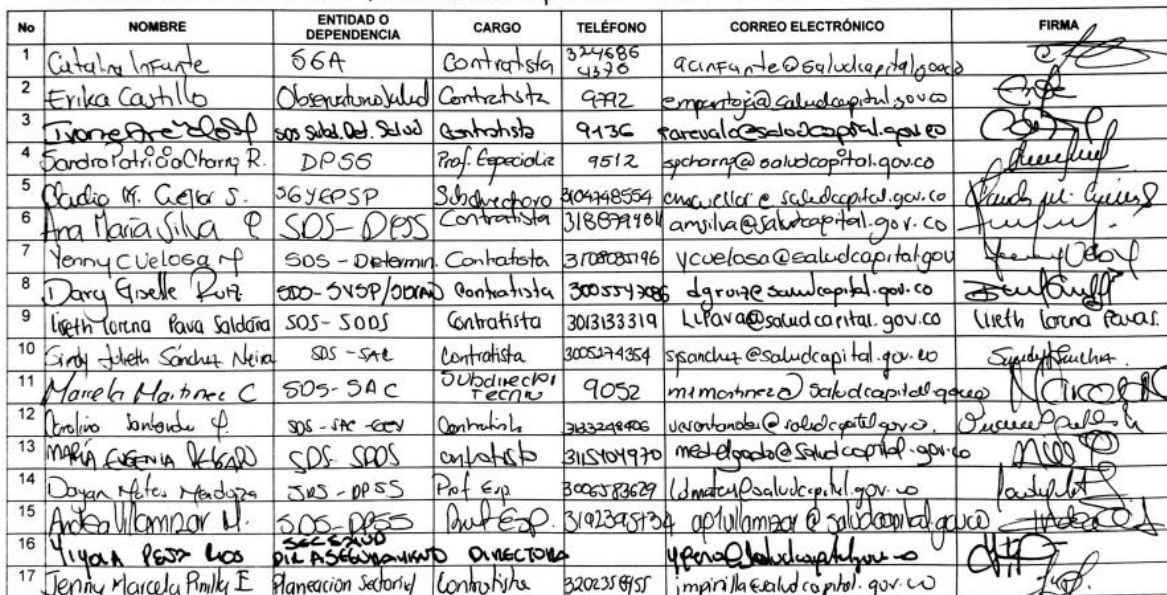 No NOMBRE ENTIDAD O DEPENDENCIA CARGO TELÉFONO CORREO ELECTRÓNICO FIRMA
1 Catalina Infante SGA Contratista 324686 4370 acinfante@saludcapital.gov.co
2 Erika Castillo Observatorio Salud Contratista 9792 empantoja@saludcapital.gov.co
3 SDS Subd. Det. Salud Contratista 9136 parevalo@saludcapital.gov.co
4 Sandra Patricia Charry R. DPSS Prof. Especializ 9512 spcharry@saludcapital.gov.co
5 M. Cuellar S. SGYEPSP Subdirectora 3104748554 cmcuellar@saludcapital.gov.co
6 Ana María Silva SDS-DPSS Contratista amsilva@saludcapital.gov.co
7 Yenny C Velosa SDS - Determin. Contratista 3108085196 ycvelosa@saludcapital.gov
8 Darcy Giselle Ruiz Contratista dgruiz@saludcapital.gov.co
9 Liseth Lorena Pava Saldaña SDS-SODS Contratista 3013133319 LLPava@saludcapital.gov.co Liseth Lorena Pava S.
10 Sindy Julieth Sánchez Neira SDS - SAC Contratista 3005274354 sjsanchez@saludcapital.gov.co
11 Marcela Martinez C SDS-SAC Subdirector Tecnic 9052 mimartinez@saludcapital.gov.co
12 Carolina Santander SDS - SAC Contratista @saludcapital.gov.co.
13 MARÍA EUGENIA DELGADO SDS Contratista 3115404970 medelgado@saludcapital.gov.co
14 Dayan Mateus Mendoza SDS - DPSS Prof Esp 3006583629 ldmateus@saludcapital.gov.co
15 Andrea Villamizar M. SDS-DPSS Prof Esp. @saludcapital.gov.co
16 SECSALUD DIR ASEGURAMIENTO DIRECTORA ypena@saludcapital.gov.co
17 Jenny Marcela Pinilla E Planeación Sectorial Contratista jmpinilla@saludcapital.gov.co